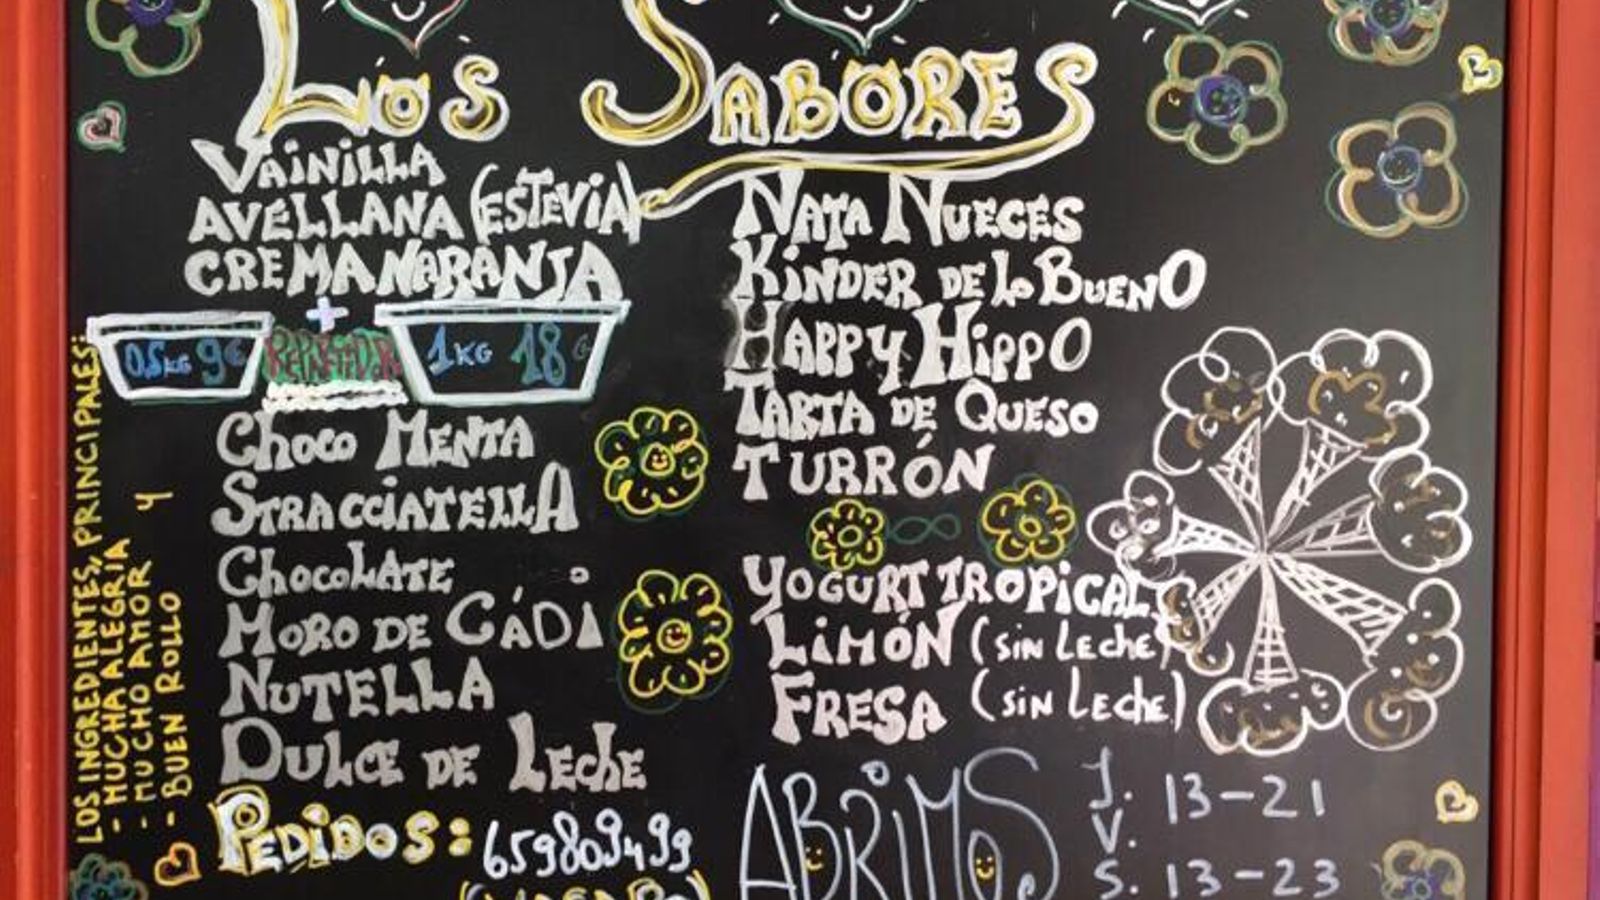 LOS SABORES
VAINILLA
AVELLANA (ESTEVIA)
CREMA NARANJA
+
0,5KG 9€
1KG 18€
CHOCO MENTA
STRACCIATELLA
CHOCOLATE
MORO DE CÁDI
NUTELLA
DULCE DE LECHE
PEDIDOS: 659809499
NATA NUECES
KINDER DE LO BUENO
HAPPY HIPPO
TARTA DE QUESO
TURRÓN
YOGURT TROPICAL
LIMÓN (SIN LECHE)
FRESA (SIN LECHE)
ABRIMOS
J. 13-21
V.
S. 13-23
LOS INGREDIENTES, PRINCIPALES:
- MUCHA ALEGRIA
- MUCHO AMOR Y
- BUEN ROLLO